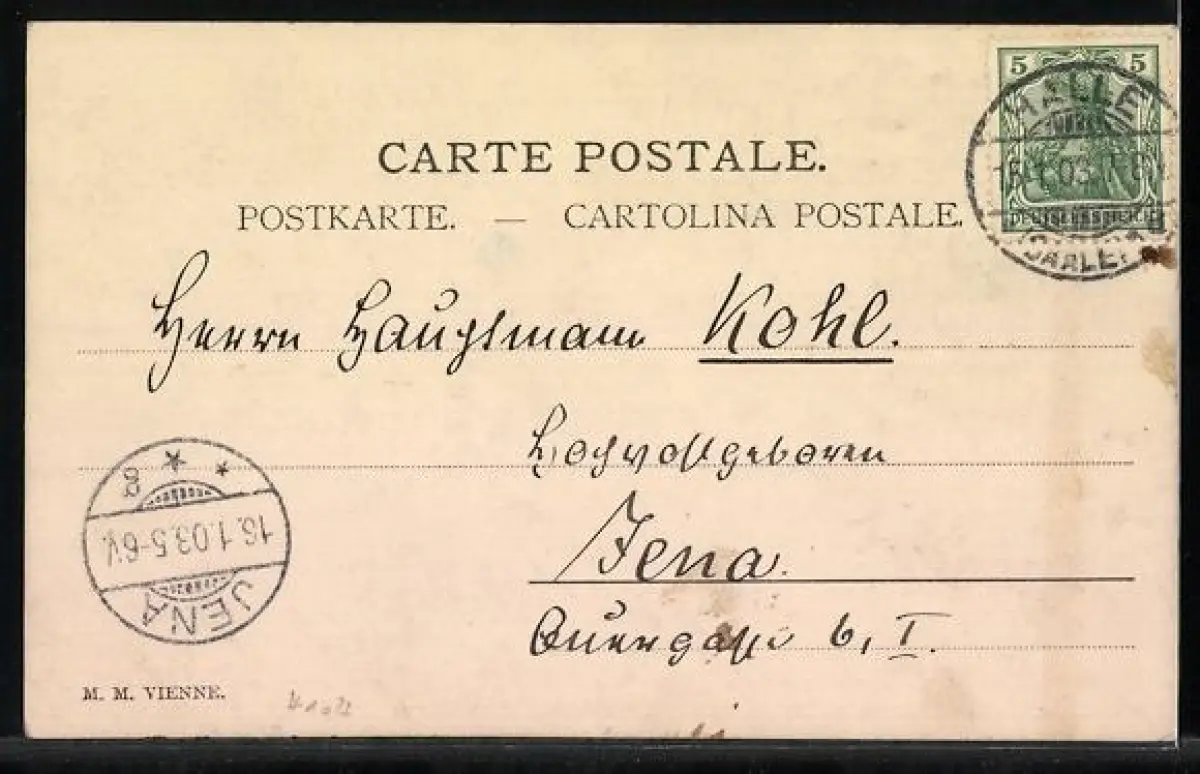 5 5
HALLE
.1.03.
DEUTSCHES REICH
(SAALE)
CARTE POSTALE.
POSTKARTE. — CARTOLINA POSTALE.
Herrn Hauptmann Kohl.
Hochwohlgeboren
Jena.
Quergasse 6, I.
JENA
16.1.03.5-6V.
* *
M. M. VIENNE.